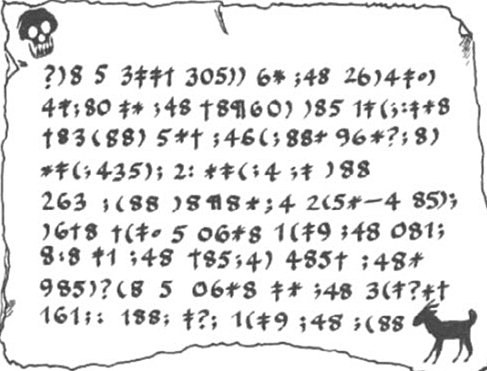 ?)8 5 3‡‡† 305)) 6* ;48 26)4‡•)
4‡;80 ‡* ;48 †8¶60) )85 1‡(;:‡*8
†83(88) 5*† ;46(;88* 96*?;8)
*‡(;435); 2: *‡(;4 ;‡ )88
263 ;(88 )8¶8*;4 2(5*–4 85);
)6†8 †(‡• 5 06*8 1(‡9 ;48 081;
8:8 ‡1 ;48 †85;4) 485† ;48*
985)?(8 5 06*8 ‡* ;48 3(‡?*†
161;: 188; ‡?; 1(‡9 ;48 ;(88